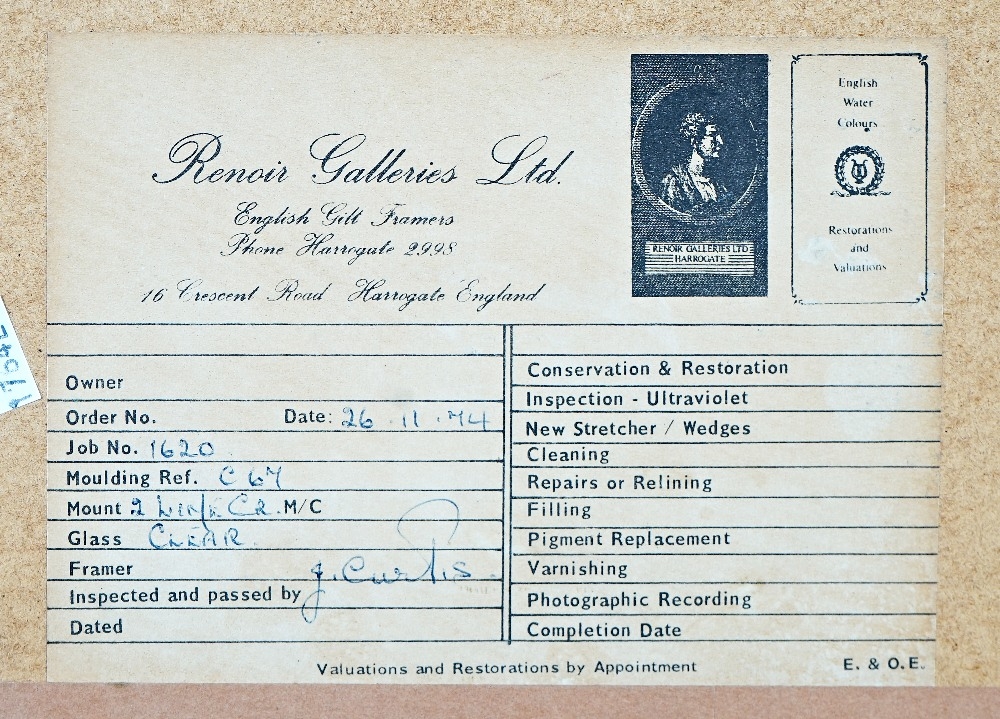 Renoir Galleries Ltd.
English Gilt Framers
Phone Harrogate 2998
16 Crescent Road Harrogate England
RENOIR GALLERIES LTD
HARROGATE
English
Water
Colours
Restorations
and
Valuations
Owner
Order No. Date: 26.11.74
Job No. 1620
Moulding Ref. C 67
Mount 2 LINE CR. M/C
Glass CLEAR.
Framer
Inspected and passed by J. Curtis.
Dated
Conservation & Restoration
Inspection - Ultraviolet
New Stretcher / Wedges
Cleaning
Repairs or Relining
Filling
Pigment Replacement
Varnishing
Photographic Recording
Completion Date
Valuations and Restorations by Appointment
E. & O.E.